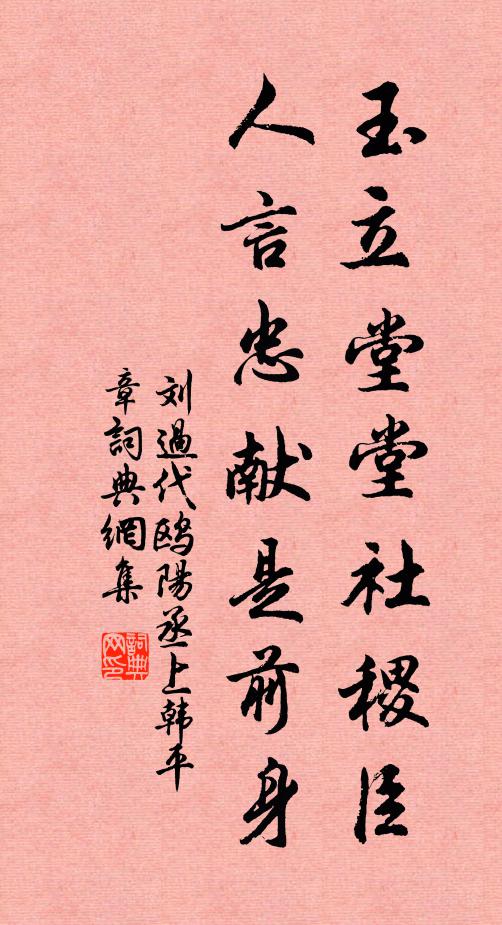 玉立堂堂社稷臣
人言忠献是前身
刘過代鸥陽丞上韩平
章詞典網集
詞典网印